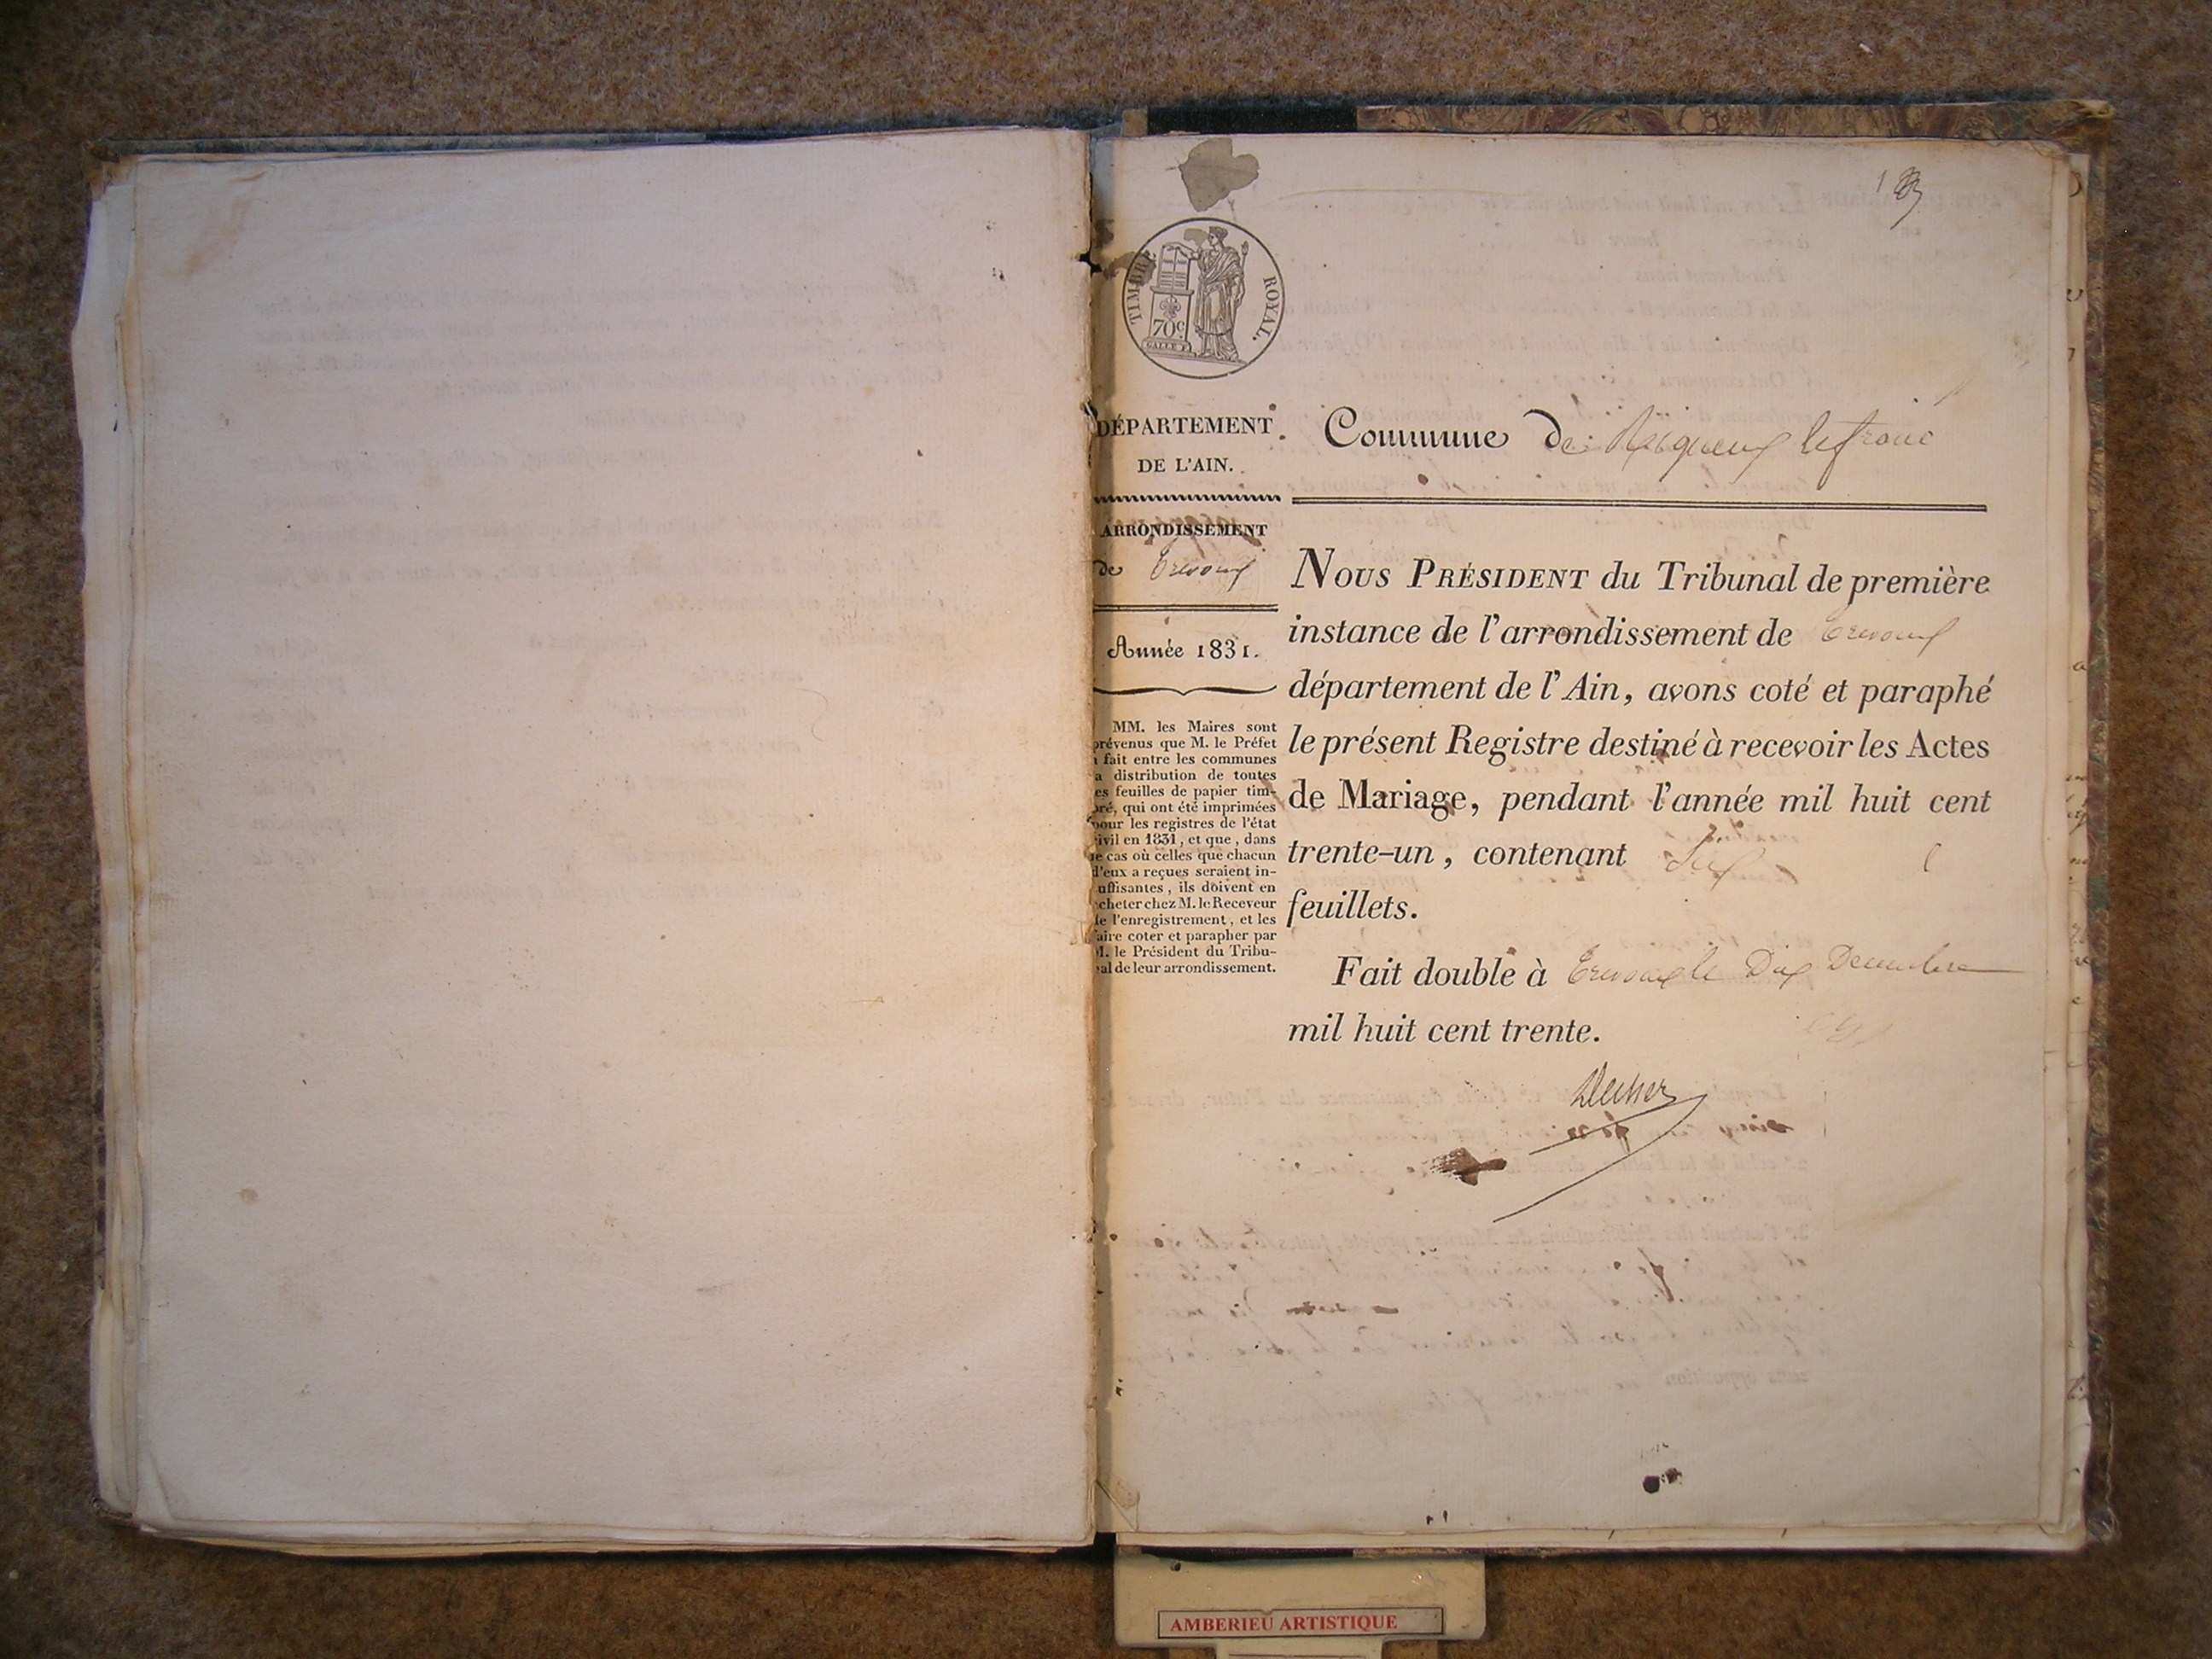 TIMBRE ROYAL.
70c
DÉPARTEMENT
DE L'AIN.
ARRONDISSEMENT
de Trevoux
Année 1831.
MM. les Maires sont
prévenus que M. le Préfet
a fait entre les communes
la distribution de toutes
les feuilles de papier tim-
bré, qui ont été imprimées
pour les registres de l'état
civil en 1831, et que, dans
le cas où celles que chacun
d'eux a reçues seraient in-
suffisantes, ils doivent en
acheter chez M. le Receveur
de l'enregistrement, et les
faire coter et parapher par
M. le Président du Tribu-
nal de leur arrondissement.
Commune de
NOUS PRÉSIDENT du Tribunal de première
instance de l'arrondissement de Trevoux
département de l'Ain, avons coté et paraphé
le présent Registre destiné à recevoir les Actes
de Mariage, pendant l'année mil huit cent
trente-un, contenant
feuillets.
Fait double à Trevoux le Dix Decembre
mil huit cent trente.
AMBERIEU ARTISTIQUE